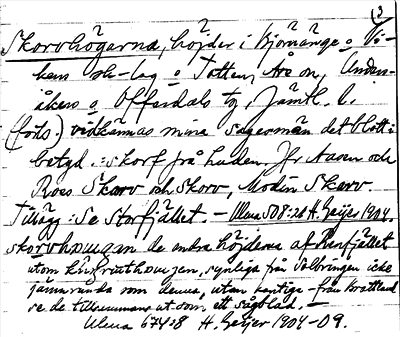 3
Skorvhögarna, höjder i Björnänge o Vi-
kens sk-lag o Totten, Are sn, Unders-
åkers o Offerdals tg, Jämtl. l.
(forts.) vidkännas mina sagesmän det blott i
betyd. : skorf på huden. Jfr Aasen och
Ross Skarv och Skorv, Modin Skarv.
Tillägg: Se Storfjället. – Ulma 508:26 H. Geijer 1904.
skorvhougan de andra höjderna af Renfjället
utom, synliga från Valbringen icke
jämnrunda som denna, utan kantiga – från Brattland
se de tillsammans ut som ett sågblad. –
Ulma 674:8 H. Geijer 1904-09.